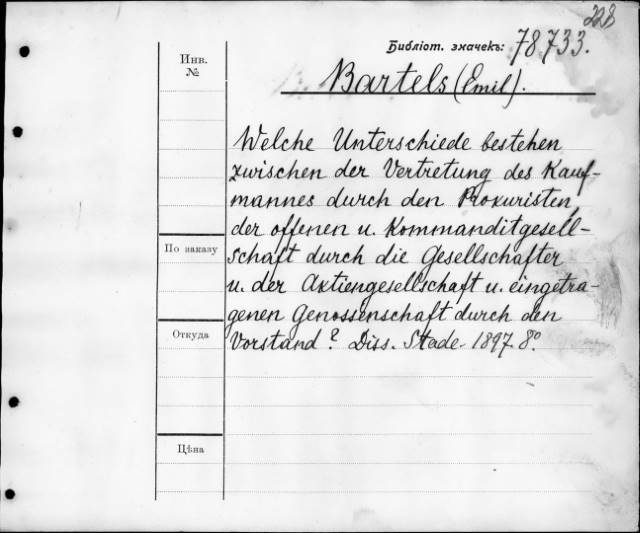 228
Библіот. значекъ: 78733.
Инв.
№
Bartels (Emil).
Welche Unterschiede bestehen
zwischen der Vertretung des Kauf-
mannes durch den Prokuristen,
der offenen u. Kommanditgesell-
schaft durch die Gesellschafter
u. der Aktiengesellschaft u. eingetra-
genen Genossenschaft durch den
Vorstand? Diss. Stade. 1897. 8º.
По заказу
Откуда
Цѣна